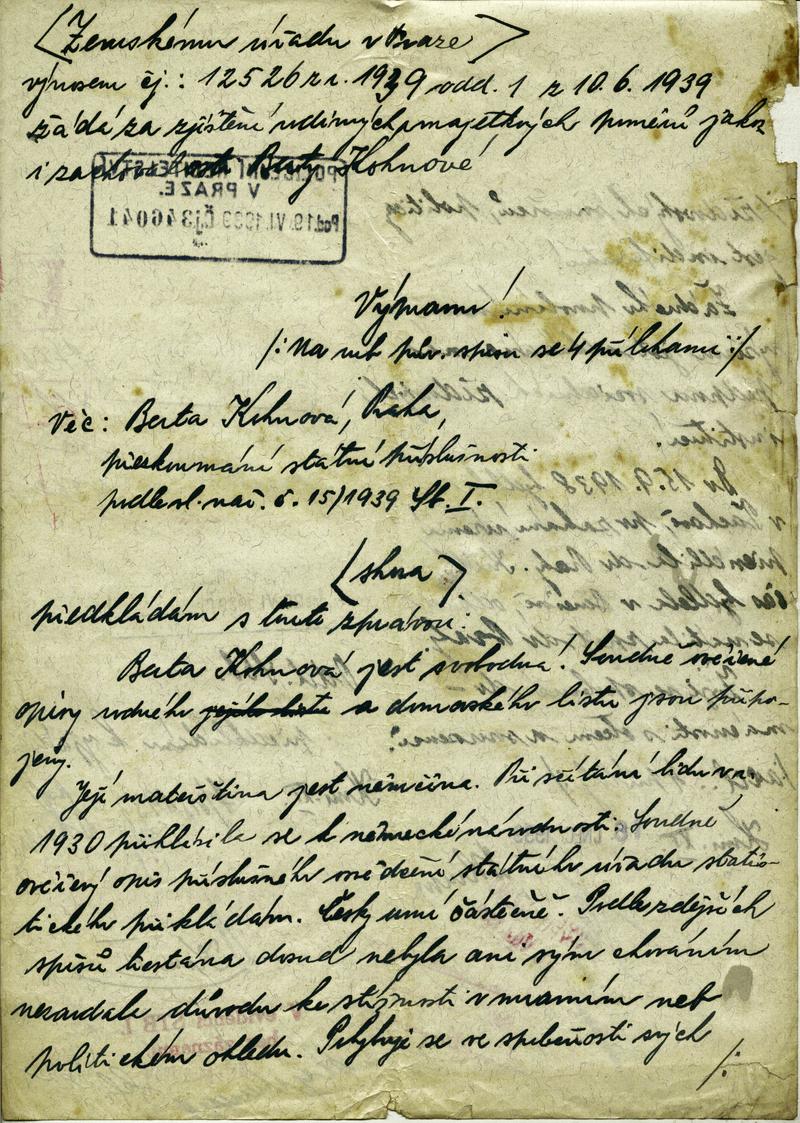 Zemskému úřadu v Praze
výnosem čj.: 12526 z r. 1939 odd. 1 z 10.6. 1939
žádá za zjištění rodinných, majetkových poměrů jakož
i zachovalosti Berty Kohnové
V PRAZE.
Pod. 19. VI. 1939 Čj. 346041
Význam!
/: Na rub pův. spisu se 4 přílohami :/
Věc: Berta Kohnová, Praha,
přezkoumání státní příslušnosti
podle vl. nař. č. 15/1939 Sb. I.
předkládám s touto zprávou:
Berta Kohnová jest svobodná. Soudně ověřené
opisy rodného jejího listu a domovského listu jsou připo-
jeny.
Její mateřština jest němčina. Při sčítání lidu v r.
1930 přihlásila se k německé národnosti. Soudně
ověřený opis příslušného osvědčení státního úřadu statis-
tického přikládám. Česky umí částečně. Podle zdejších
spisů trestána dosud nebyla ani svým chováním
nezavdala důvodu ke stížnosti v mravním neb
politickém ohledu. Pohybuje se ve společnosti svých
/: